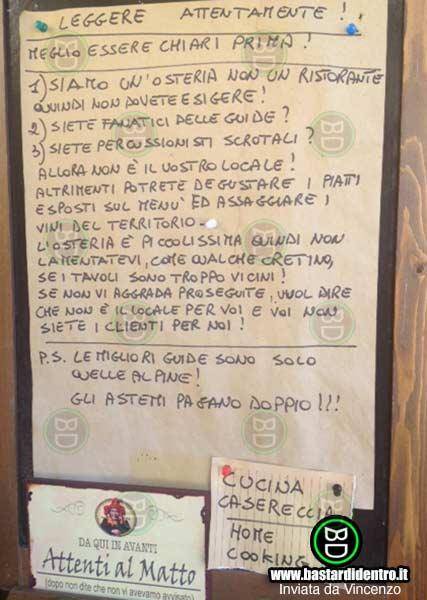 LEGGERE ATTENTAMENTE!
MEGLIO ESSERE CHIARI PRIMA!
1) SIAMO UN'OSTERIA NON UN RISTORANTE
QUINDI NON DOVETE ESIGERE!
2) SIETE FANATICI DELLE GUIDE?
3) SIETE PERCUSSIONISTI SCROTALI?
ALLORA NON È IL VOSTRO LOCALE!
ALTRIMENTI POTRETE DEGUSTARE I PIATTI
ESPOSTI SUL MENÙ ED ASSAGGIARE I
VINI DEL TERRITORIO.
L'OSTERIA È PICCOLISSIMA QUINDI NON
LAMENTATEVI, COME QUALCHE CRETINO,
SE I TAVOLI SONO TROPPO VICINI!
SE NON VI AGGRADA PROSEGUITE, VUOL DIRE
CHE NON È IL LOCALE PER VOI E VOI NON
SIETE I CLIENTI PER NOI!
P.S. LE MIGLIORI GUIDE SONO SOLO
QUELLE ALPINE!
GLI ASTEMI PAGANO DOPPIO!!!
CUCINA
CASERECCIA
HOME
COOKING
DA QUI IN AVANTI
Attenti al Matto
(dopo non dite che non vi avevamo avvisato)
BD
www.bastardidentro.it
Inviata da Vincenzo